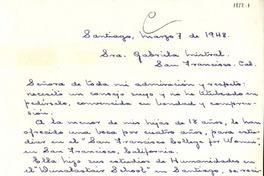 Santiago, marzo 7 de 1948.
Sra. Gabriela Mistral.
San Francisco. Cal.
Señora de toda mi admiración y respeto:
necesito un consejo suyo y no he titubeado en
pedírselo, convencida en bondad y compren-
sión.
A la menor de mis hijas de 18 años, le han
ofrecido una beca por cuatro años, para estu-
dios en el "San Francisco College for Women"
en San Francisco, California.
Ella hizo sus estudios de Humanidades en
el "Dunalastair School" en Santiago, se reci-